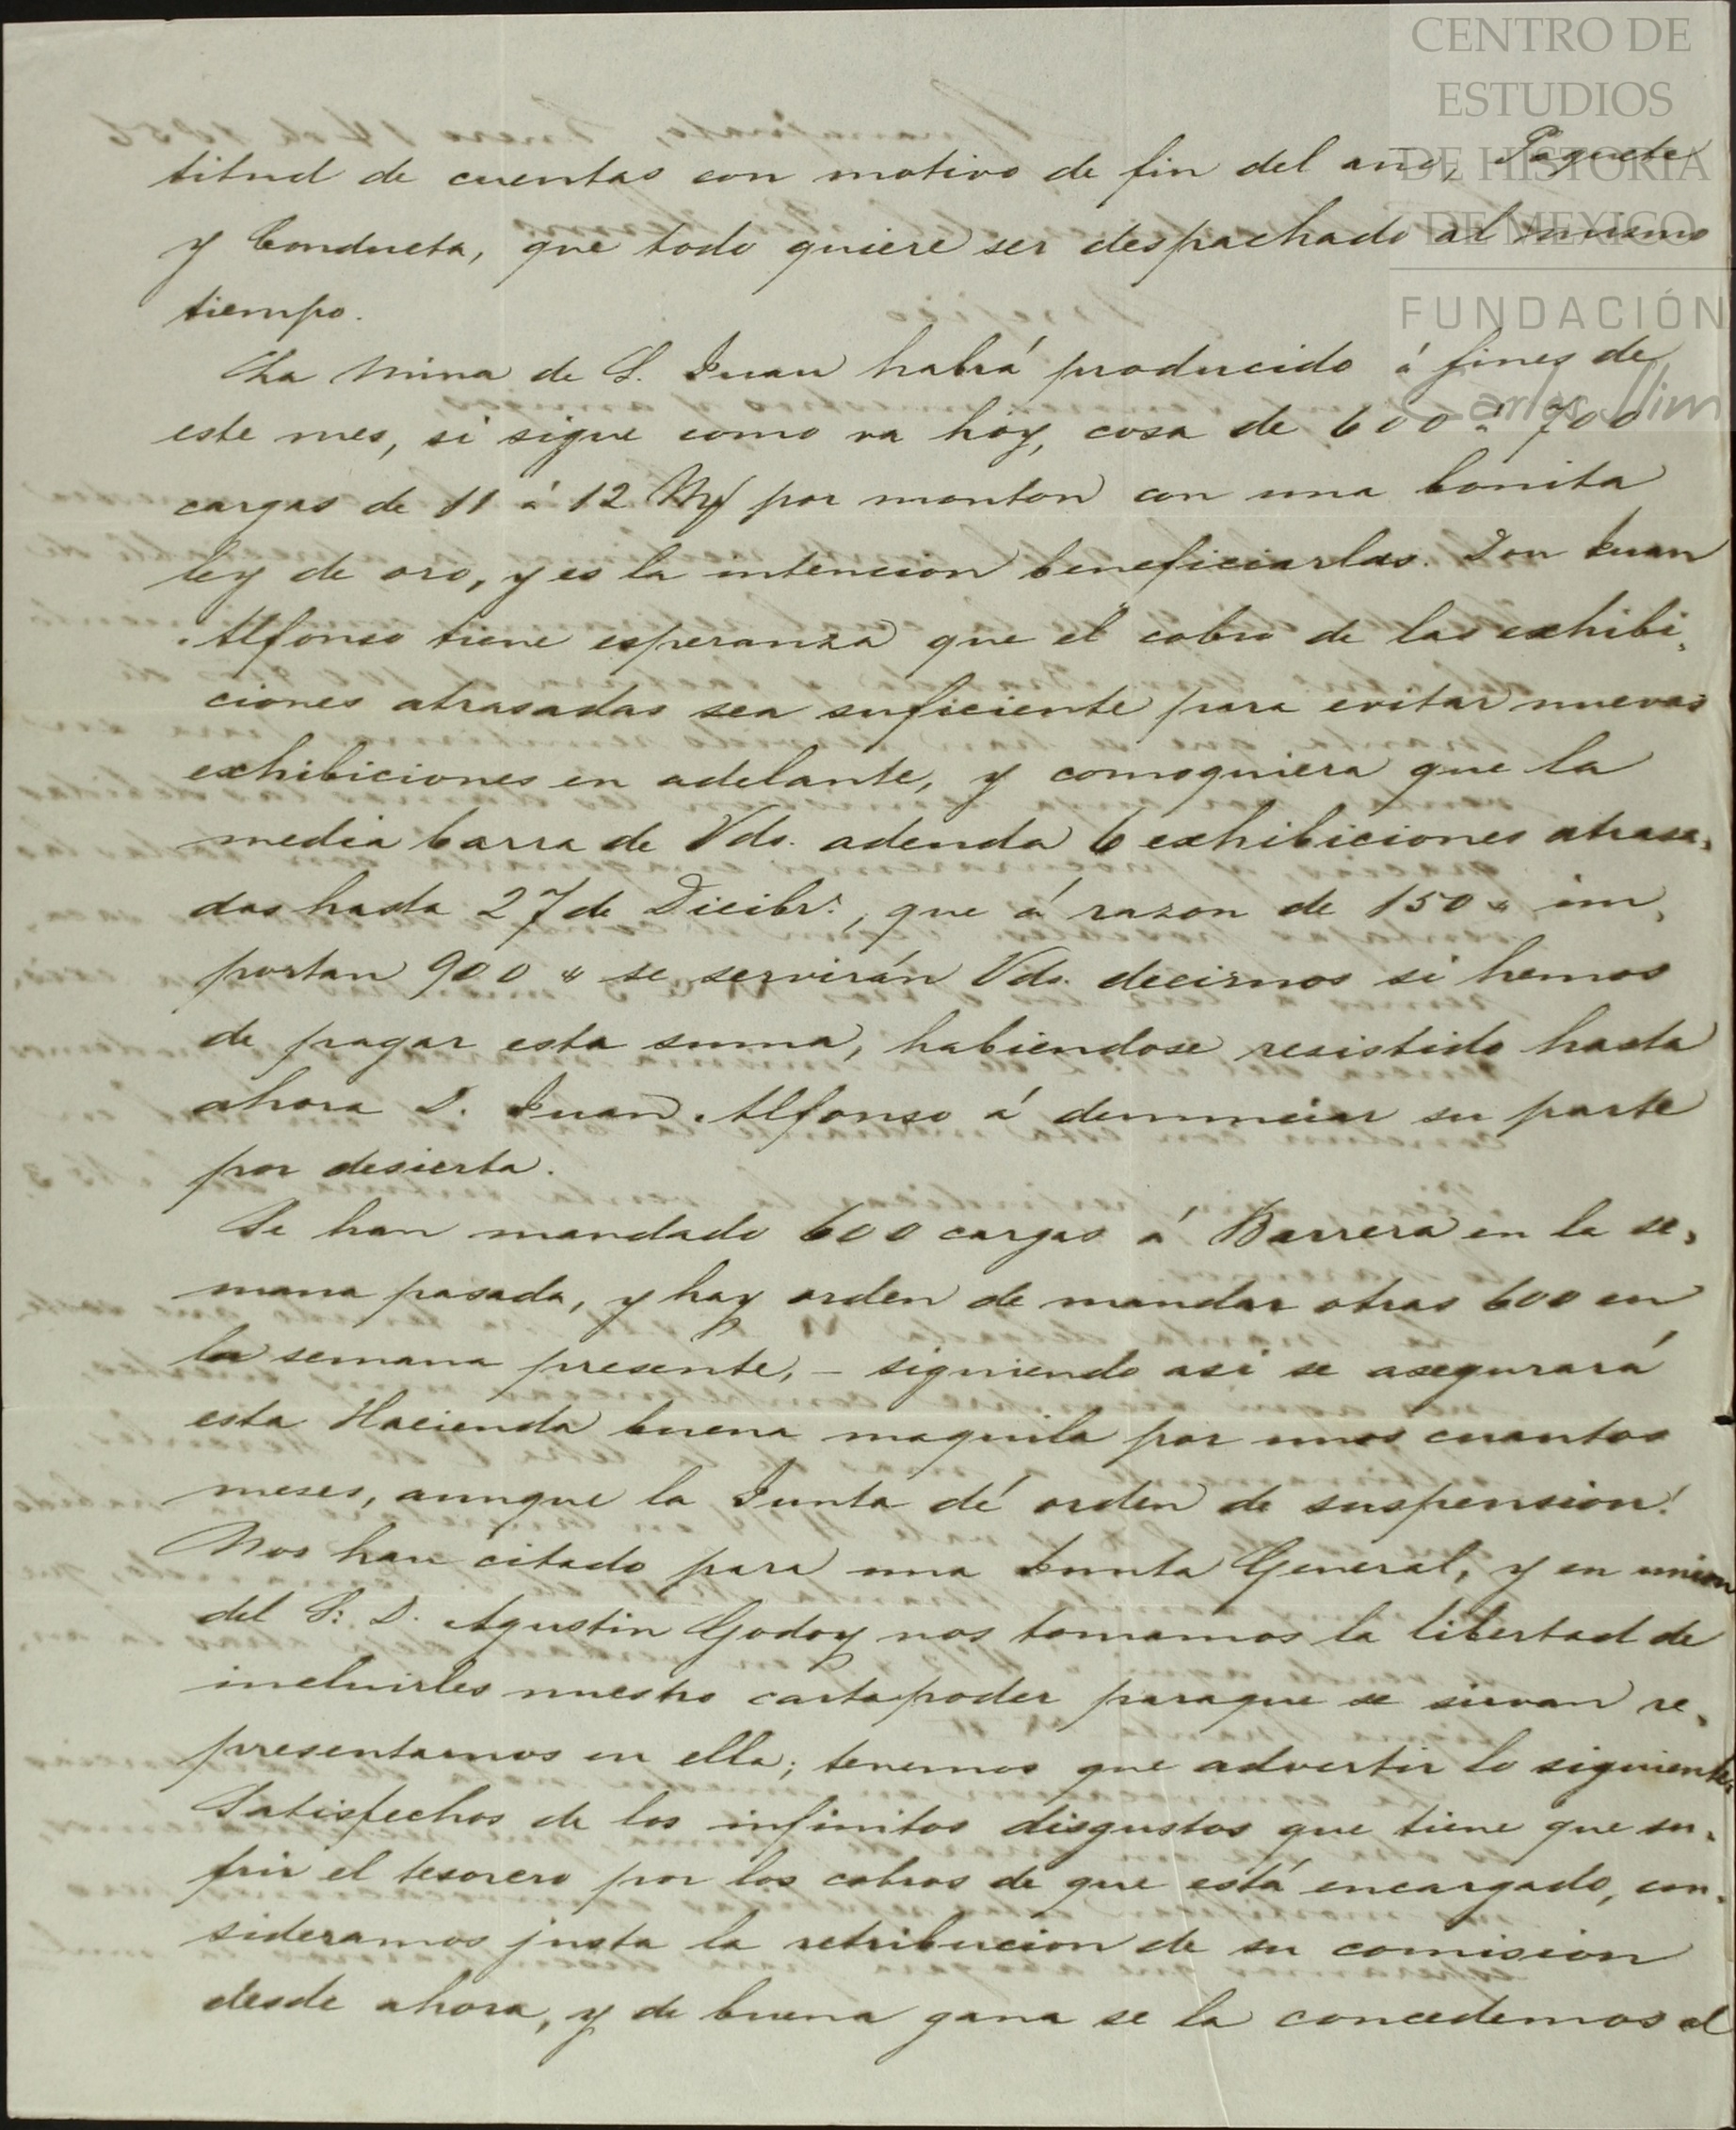 CENTRO DE
ESTUDIOS
DE HISTORIA
DE MEXICO
FUNDACIÓN
Carlos Slim
titud de cuentas con motivo de fin del ano, Paquete
y Conducta, que todo quiere ser despachado al mismo
tiempo.
La Mina de S. Juan habrá producido á fines de
este mes, si sigue como va hoy, cosa de 600 á 700
cargas de 11 á 12 por monton con una bonita
ley de oro, y es la intencion beneficiarlas. Don Juan
Alfonso tiene esperanza que el cobro de las exhibi,
ciones atrasadas sea suficiente para evitar nuevas
exhibiciones en adelante, y comoquiera que la
media barra de Vds. adeuda 6 exhibiciones atrasa,
das hasta 27 de Dicibr:, que á razon de 150 „ im,
portan 900 „ se servirán Vds. decirnos si hemos
de pagar esta suma, habiendose resistido hasta
ahora D. Juan Alfonso á denunciar su parte
por desierta.
Se han mandado 600 cargas á Barrera en la se,
mana pasada, y hay orden de mandar otras 600 en
la semana presente, – siguiendo asi se asegurará
esta Hacienda buena maquila por unos cuantos
meses, aunque la Junta dé orden de suspension!
Nos han citado para una Junta General, y en union
del S: D. Agustin Godoy nos tomamos la libertad de
incluirles nuestro cartapoder paraque se sirvan re,
presentarnos en ella; tenemos que advertir lo siguiente.
Satisfechos de los infinitos disgustos que tiene que su,
frir el tesorero por los cobros de que está encargado, con,
sideramos justa la retribucion de su comision
desde ahora, y de buena gana se la concedemos al